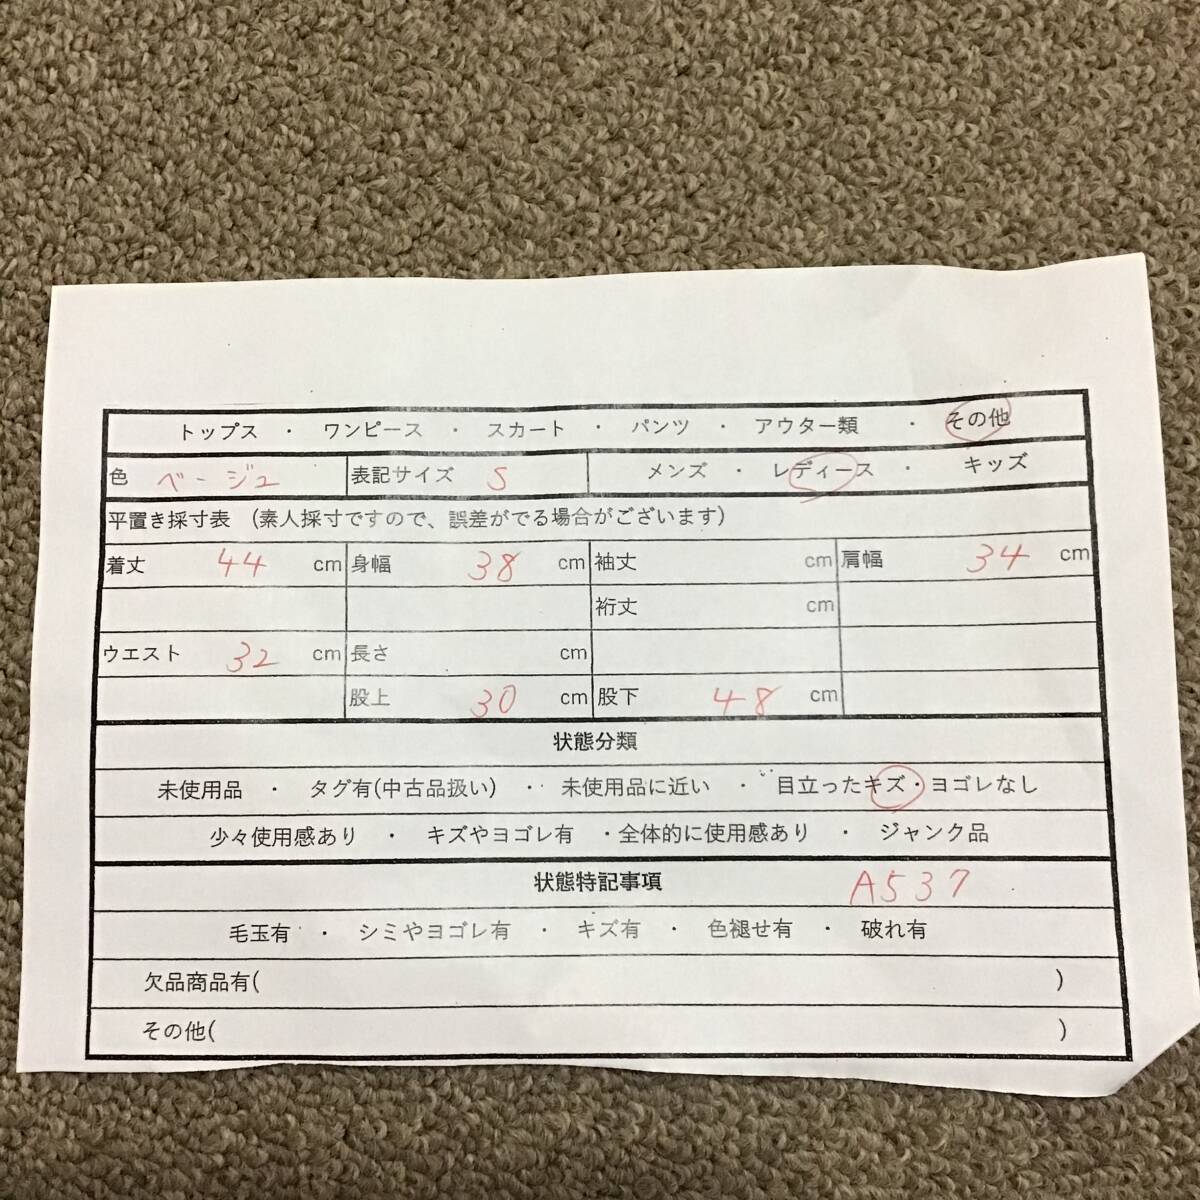 トップス ・ ワンピース ・ スカート ・ パンツ ・ アウター類 ・ その他
色 ベージュ 表記サイズ S メンズ ・ レディース ・ キッズ
平置き採寸表 (素人採寸ですので、誤差がでる場合がございます)
着丈 44 cm 身幅 38 cm 袖丈 cm 肩幅 34 cm
裄丈 cm
ウエスト 32 cm 長さ cm
股上 30 cm 股下 48 cm
状態分類
未使用品 ・ タグ有(中古品扱い) ・ 未使用品に近い ・ 目立ったキズ・ヨゴレなし
少々使用感あり ・ キズやヨゴレ有 ・全体的に使用感あり ・ ジャンク品
状態特記事項 A537
毛玉有 ・ シミやヨゴレ有 ・ キズ有 ・ 色褪せ有 ・ 破れ有
欠品商品有( )
その他( )